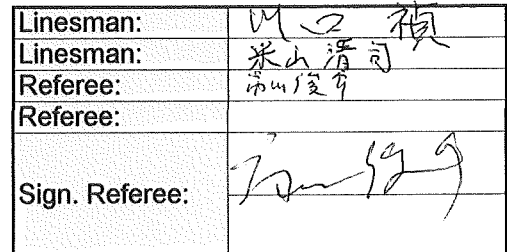 Linesman: 川口 禎
Linesman: 米山 清司
Referee:
Referee:
Sign. Referee: